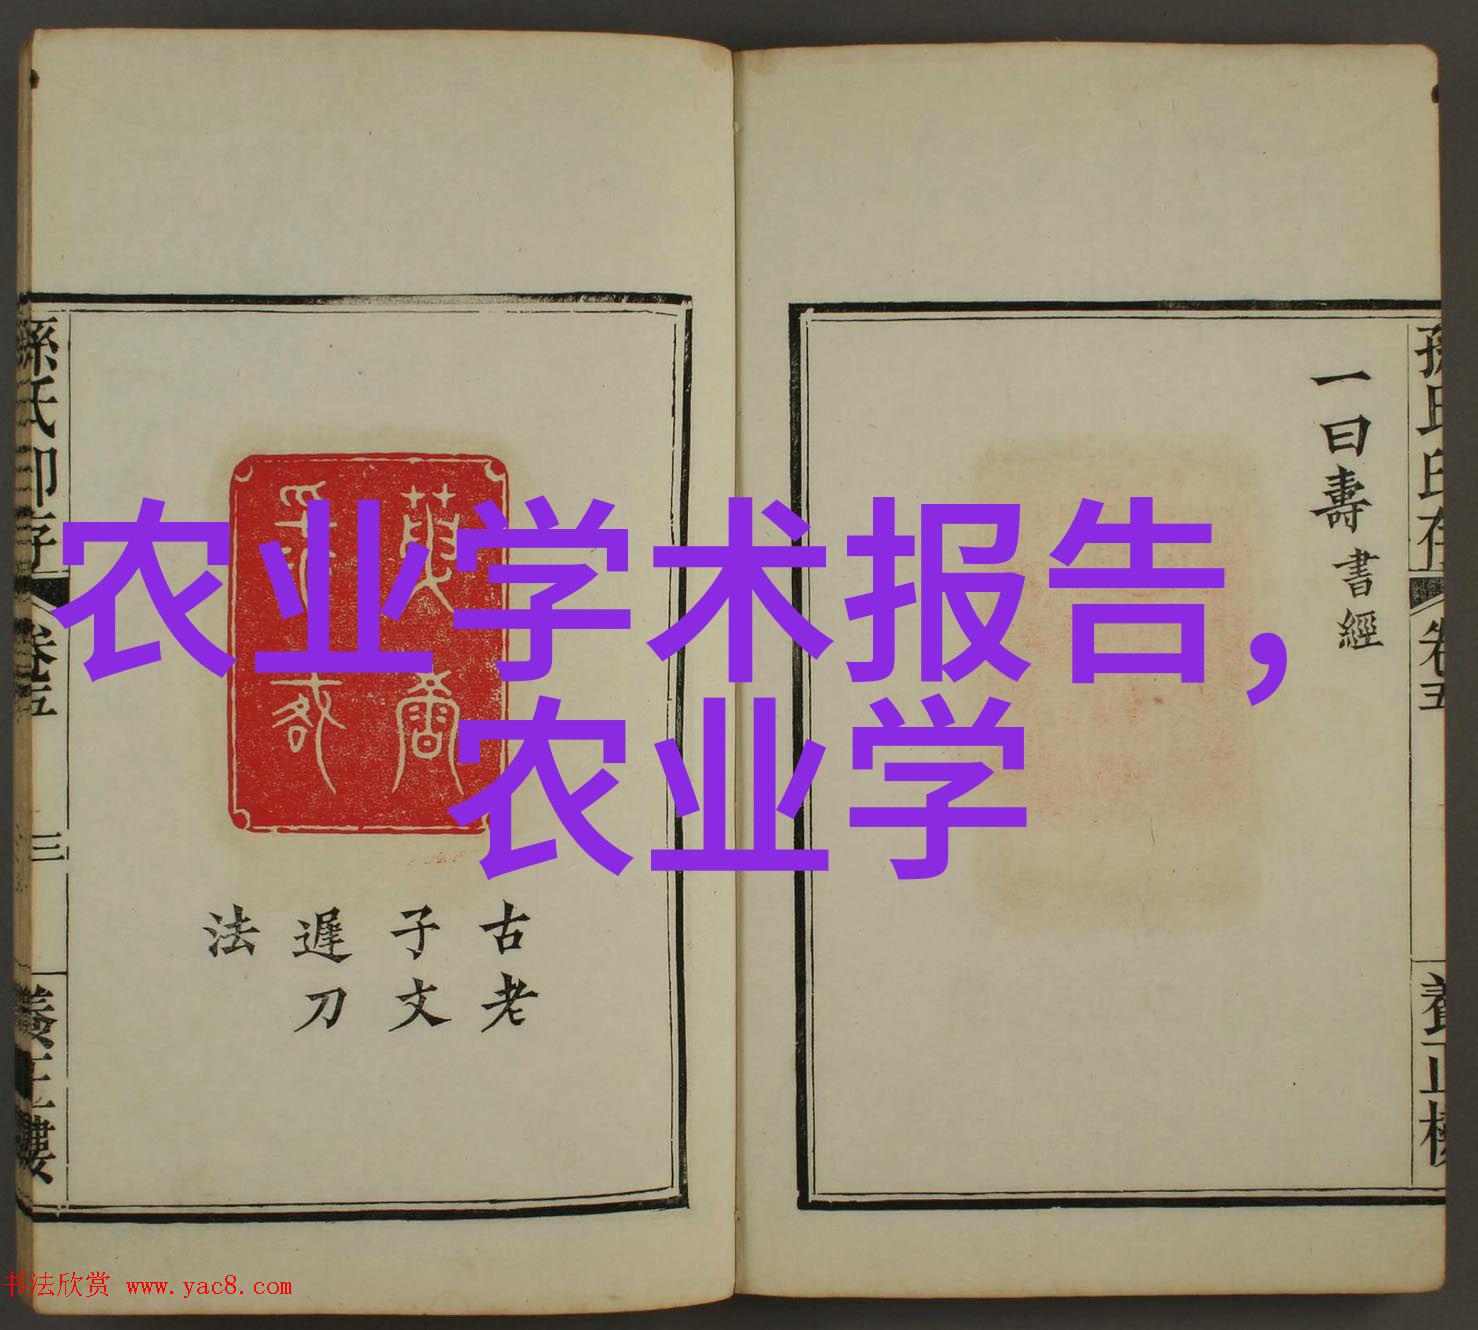 农业学术报告,
农业学
一曰壽書經
孫氏印存
卷五
養正樓
古老
子文
遲刀
法
孫氏印存
卷五
三
養正樓
书法欣赏 www.yac8.com